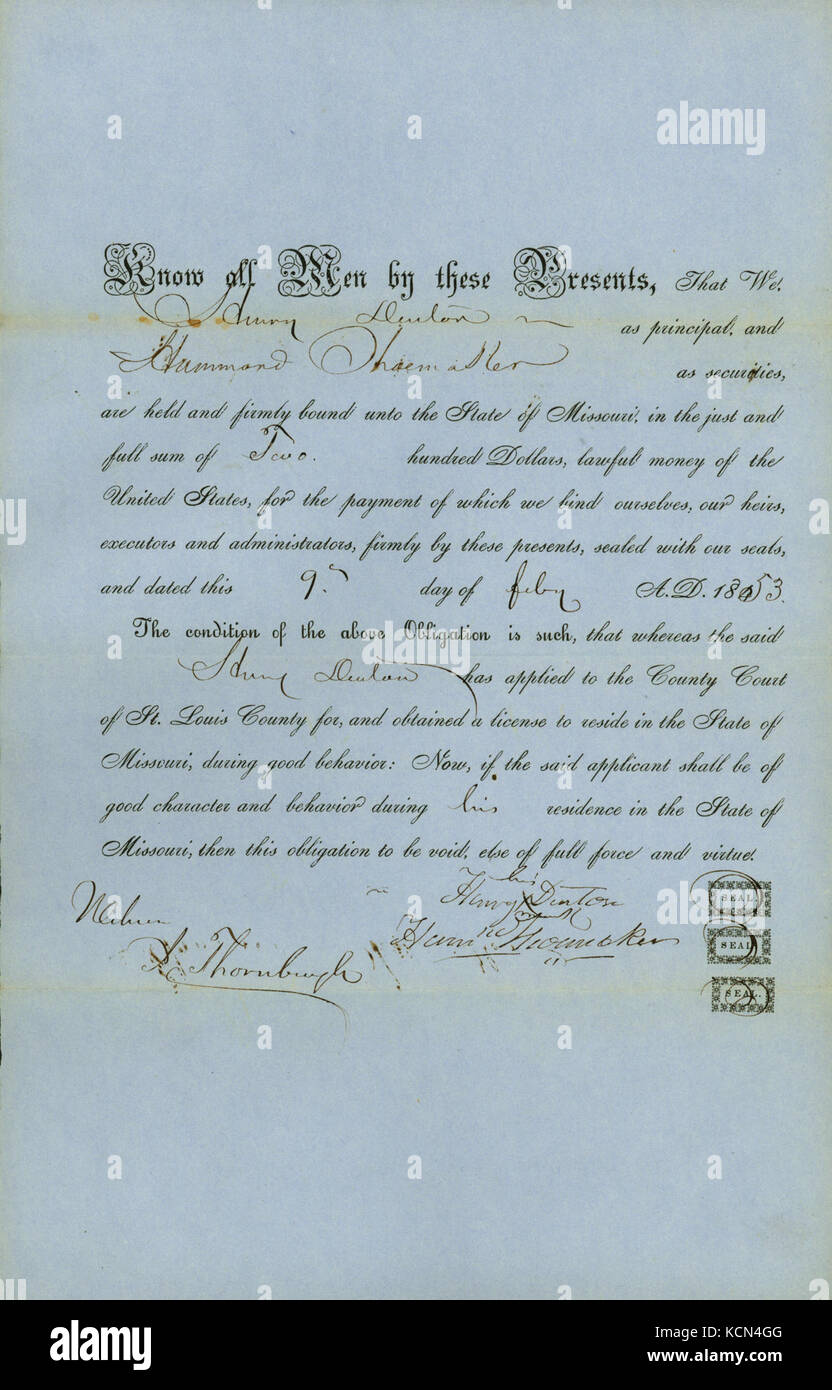 Know all Men by these Presents, That We,
Henry Denton as principal, and
Hammond Shoemaker as securities,
are held and firmly bound unto the State of Missouri, in the just and
full sum of Two. hundred Dollars, lawful money of the
United States, for the payment of which we bind ourselves, our heirs,
executors and administrators, firmly by these presents, sealed with our seals,
and dated this 9th day of feby A.D. 1853.
The condition of the above Obligation is such, that whereas the said
Henry Denton has applied to the County Court
of St. Louis County for, and obtained a license to reside in the State of
Missouri, during good behavior: Now, if the said applicant shall be of
good character and behavior during his residence in the State of
Missouri, then this obligation to be void, else of full force and virtue.
his
Henry X Denton SEAL.
mark
Hamnd Shoemaker SEAL
Thornburgh
SEAL.
alamy
Image ID: KCN4GG
www.alamy.com